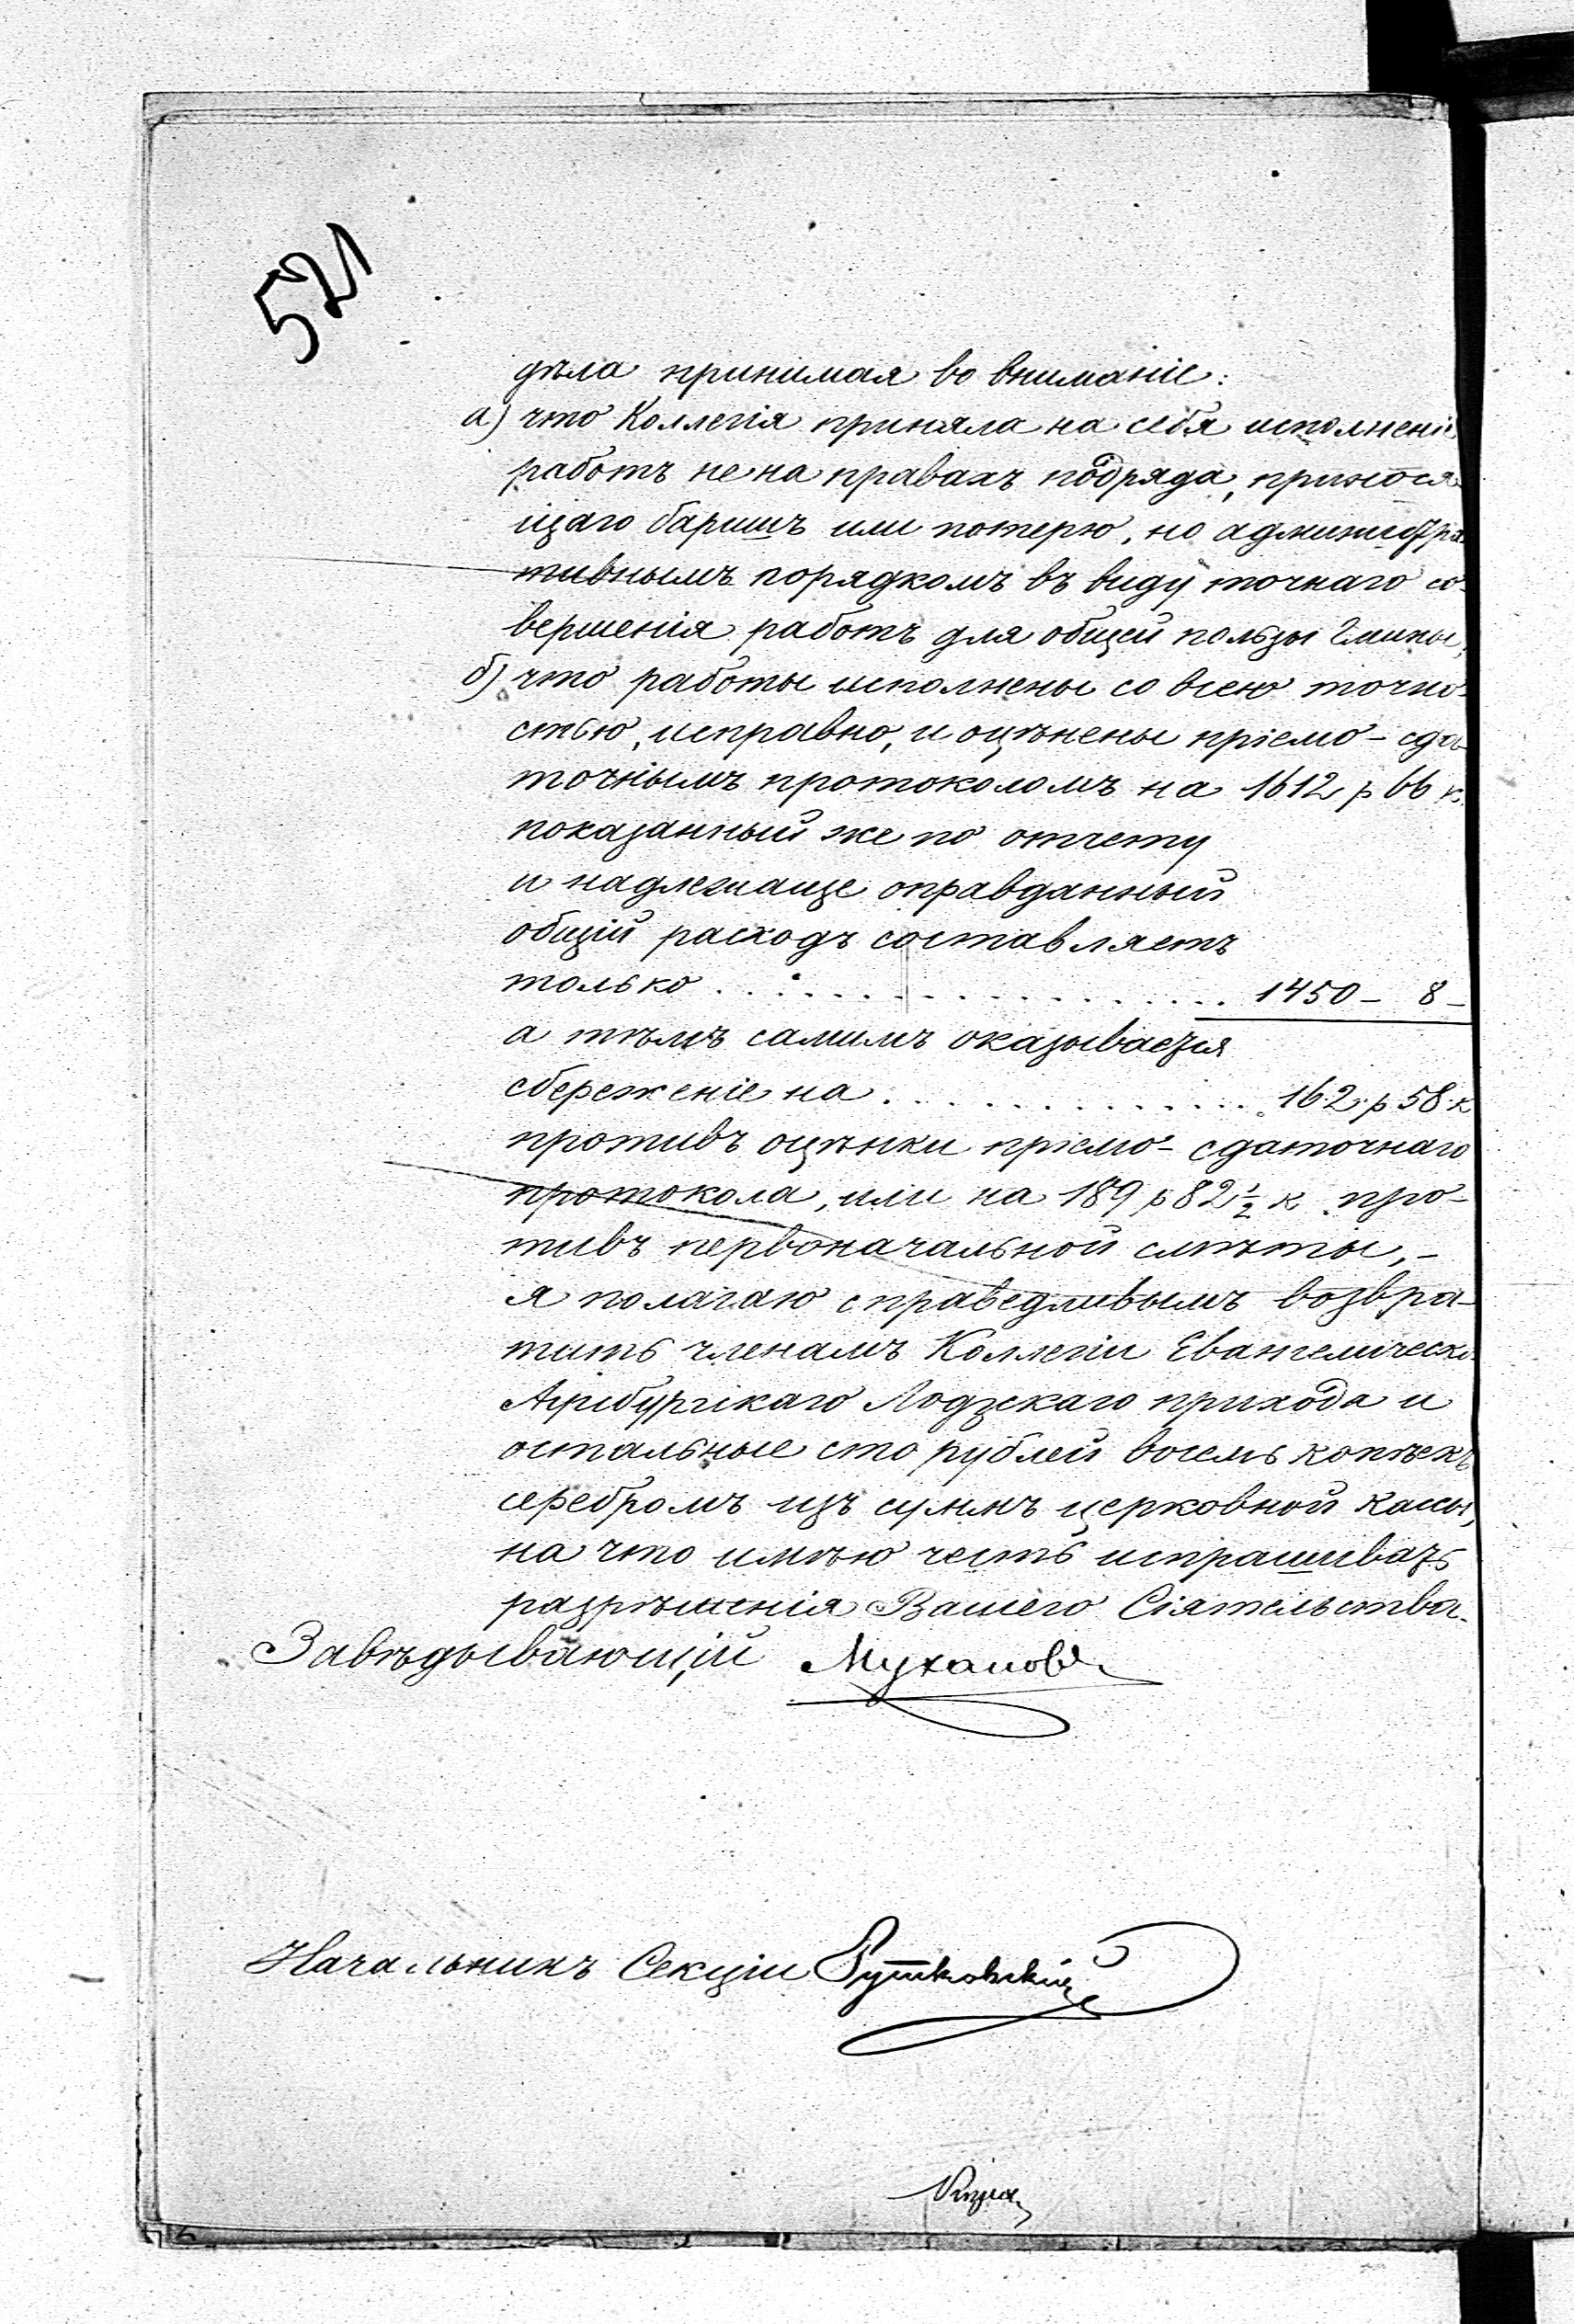 521
дѣла принимая во вниманіе:
а) что Коллегія приняла на себя исполненіе
работъ не на правахъ подряда, принося-
щаго барышъ или потерю, но администра-
тивнымъ порядкомъ въ виду точнаго со-
вершенія работъ для общей пользы Гмины;
б) что работы исполнены со всею точно-
стью, исправно, и оцѣнены пріемо-сда-
точнымъ протоколомъ на 1612 р 66 к.
показанный же по отчету
и надлежаще оправданный
общій расходъ составляетъ
только . . . . . . . . . . . . . . . . . 1450 - 8 -
а тѣмъ самымъ оказывается
сбереженіе на . . . . . . . . . . . . . 162 р 58 к
противъ оцѣнки пріемо-сдаточнаго
протокола, или на 189 р 82 1/2 к про-
тивъ первоначальной смѣты, -
я полагаю справедливымъ возвра-
тить членамъ Коллегіи Евангелическо
Аугсбургскаго Лодзскаго прихода и
остальные сто рублей восемь копѣекъ
серебромъ изъ суммъ церковной кассы,
на что имѣю честь испрашивать
разрѣшенія Вашего Сіятельства.
Завѣдывающій Мухановъ
Начальникъ Секціи